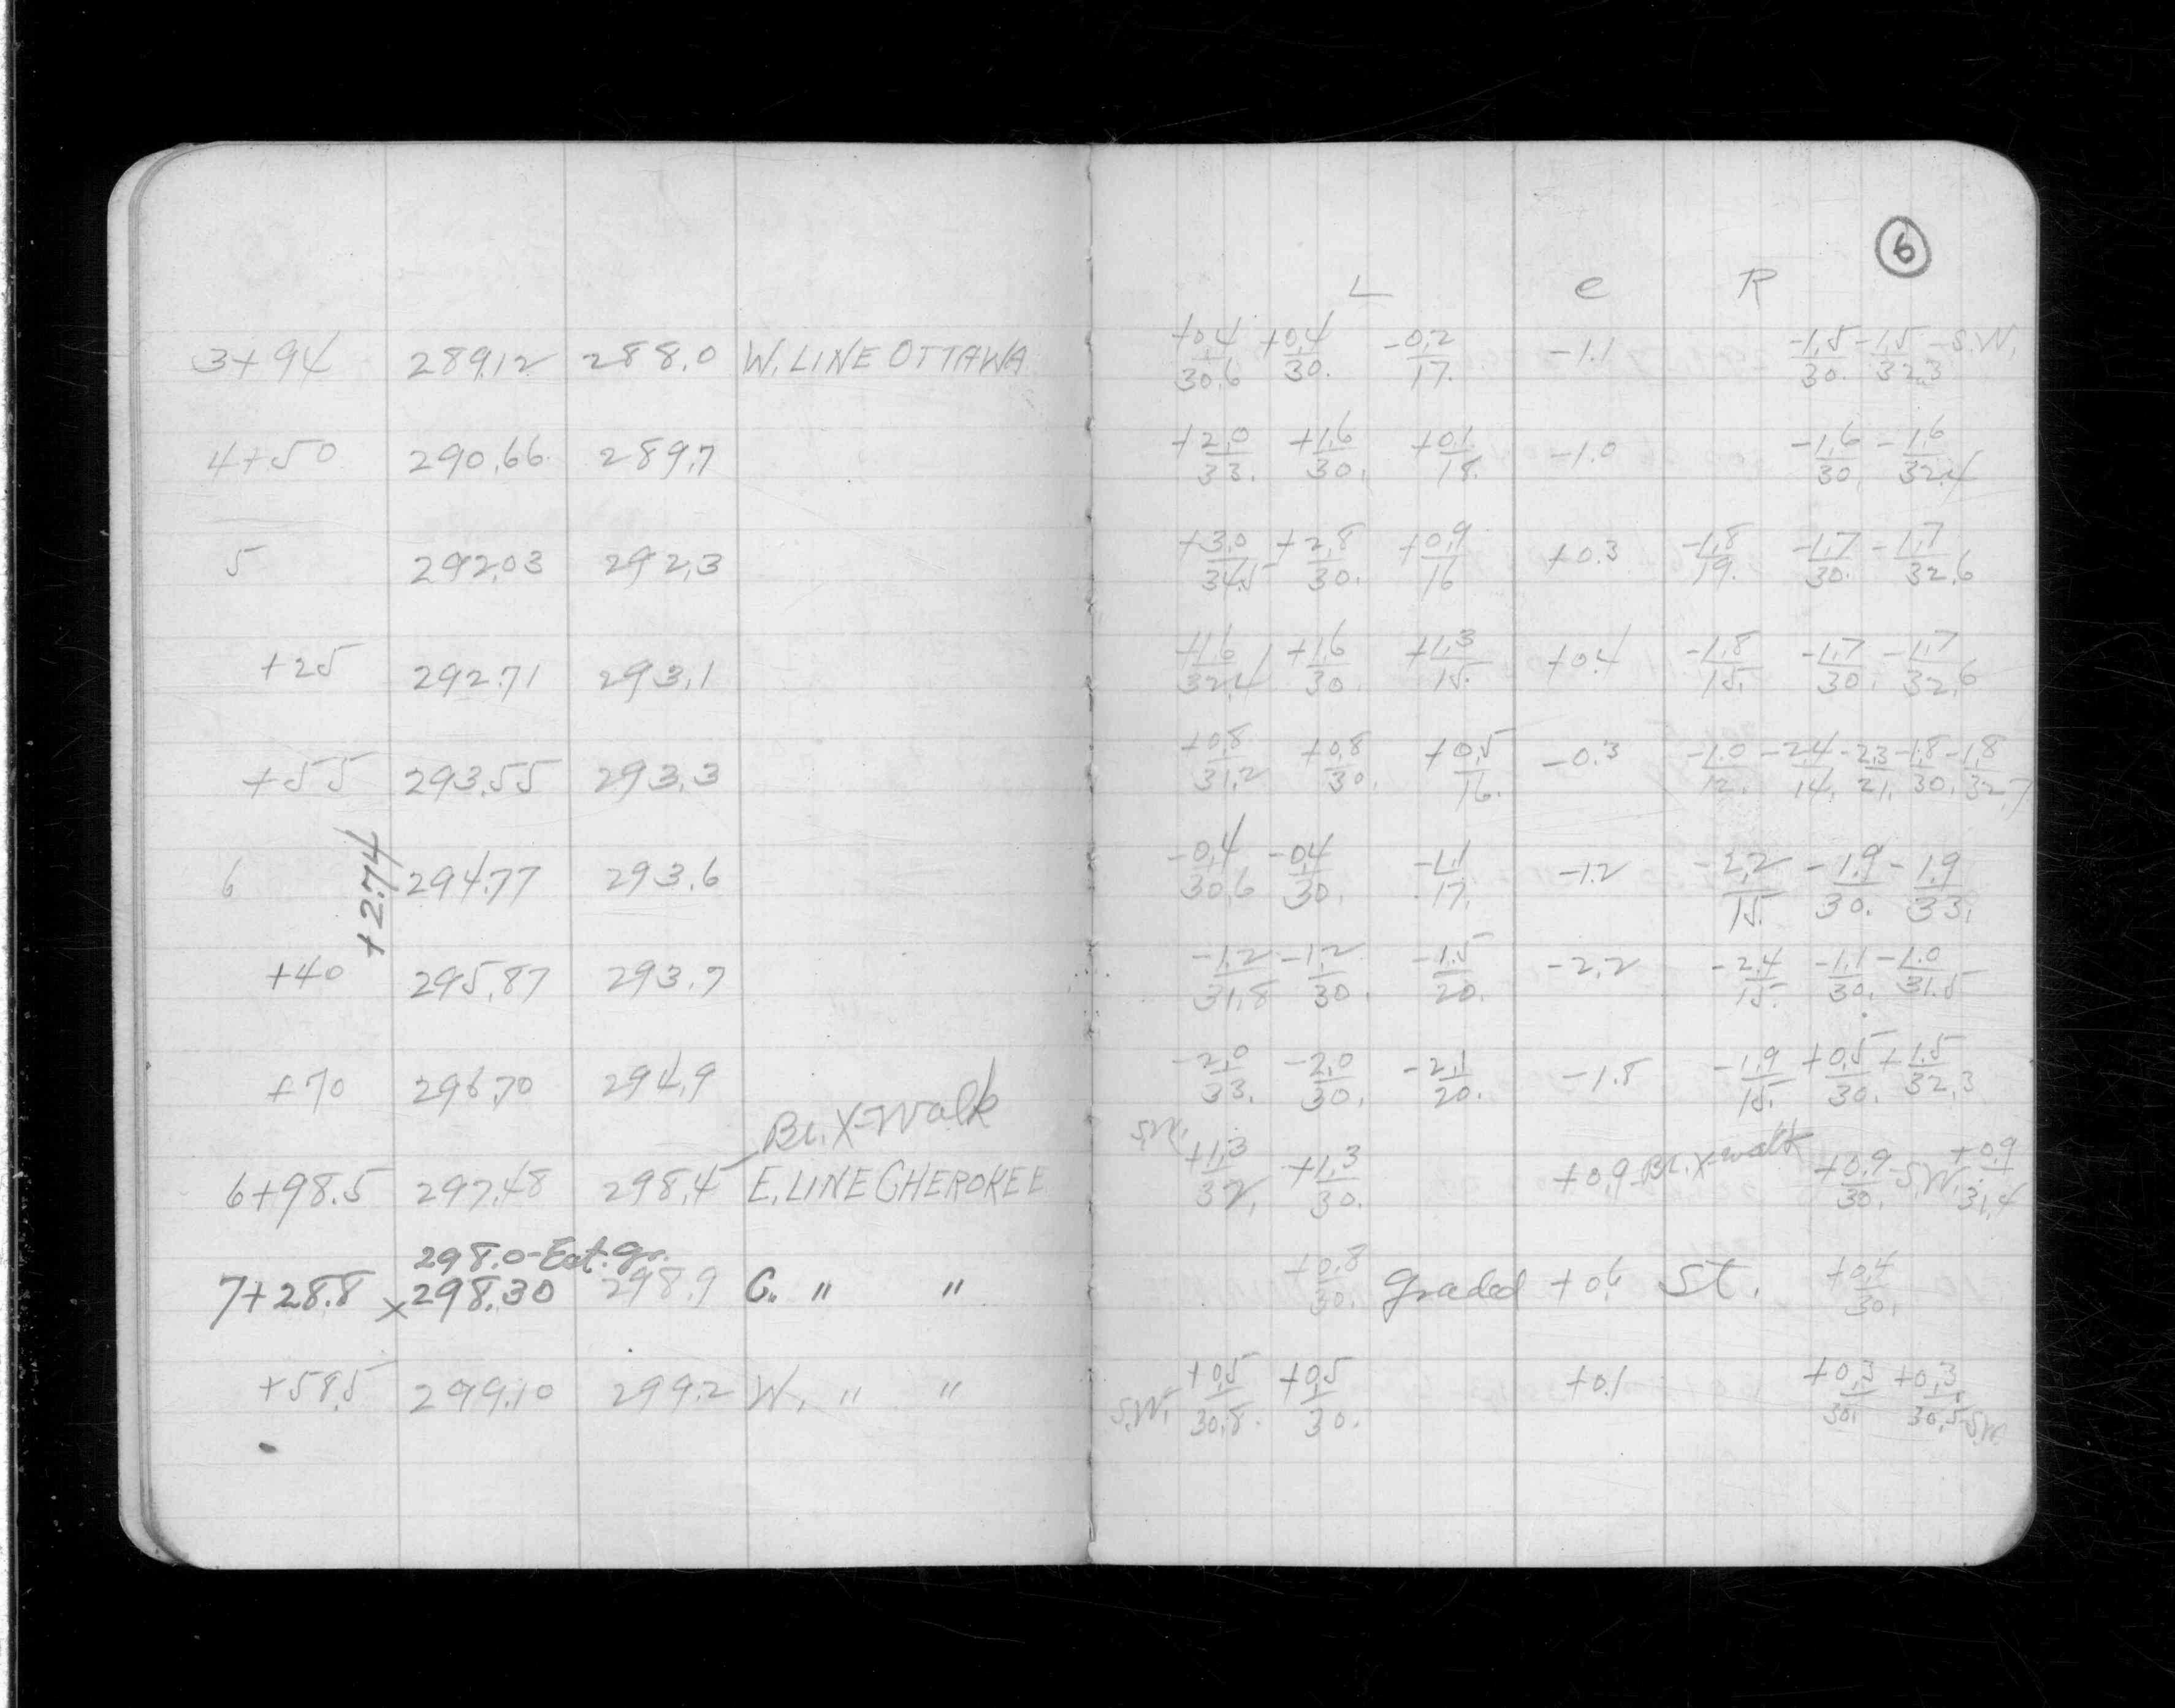 6
L C R
3+94 289.12 288.0 W. LINE OTTAWA +0.4/30.6 +0.4/30. -0.2/17. -1.1 -1.5/30. -1.5/32.3 -S.W.
4+50 290.66 289.7 +2.0/33. +1.6/30. +0.1/18. -1.0 -1.6/30. -1.6/32.4
5 292.03 292.3 +3.0/34.5 +2.8/30. +0.9/16 +0.3 -1.8/19. -1.7/30. -1.7/32.6
+25 292.71 293.1 +1.6/32.4 +1.6/30. +1.3/15. +0.4 -1.8/15. -1.7/30. -1.7/32.6
+55 293.55 293.3 +0.8/31.2 +0.8/30. +0.5/16. -0.3 -1.0/12. -2.4/14. -2.3/21. -1.8/30. -1.8/32.7
+2.74
6 294.77 293.6 -0.4/30.6 -0.4/30. -1.1/17. -1.2 -2.2/15. -1.9/30. -1.9/33.
+40 295.87 293.7 -1.2/31.8 -1.2/30. -1.5/20. -2.2 -2.4/15. -1.1/30. -1.0/31.5
+70 296.70 294.9 -2.0/33. -2.0/30. -2.1/20. -1.8 -1.9/15. +0.5/30. +1.5/32.3
Br. X-Walk
6+98.5 297.48 298.4 E. LINE CHEROKEE S.W. +1.3/32. +1.3/30. +0.9 -Br. X-walk +0.9/30. -S.W. +0.9/31.4
298.0-Est. gr.
7+28.8 x298.30 298.9 C. " " +0.8/30. graded +0.6 St. +0.4/30.
+58.5 299.10 299.2 W. " " S.W. +0.5/30.8 +0.5/30. +0.1 +0.3/30. +0.3/30.5 -S.W.